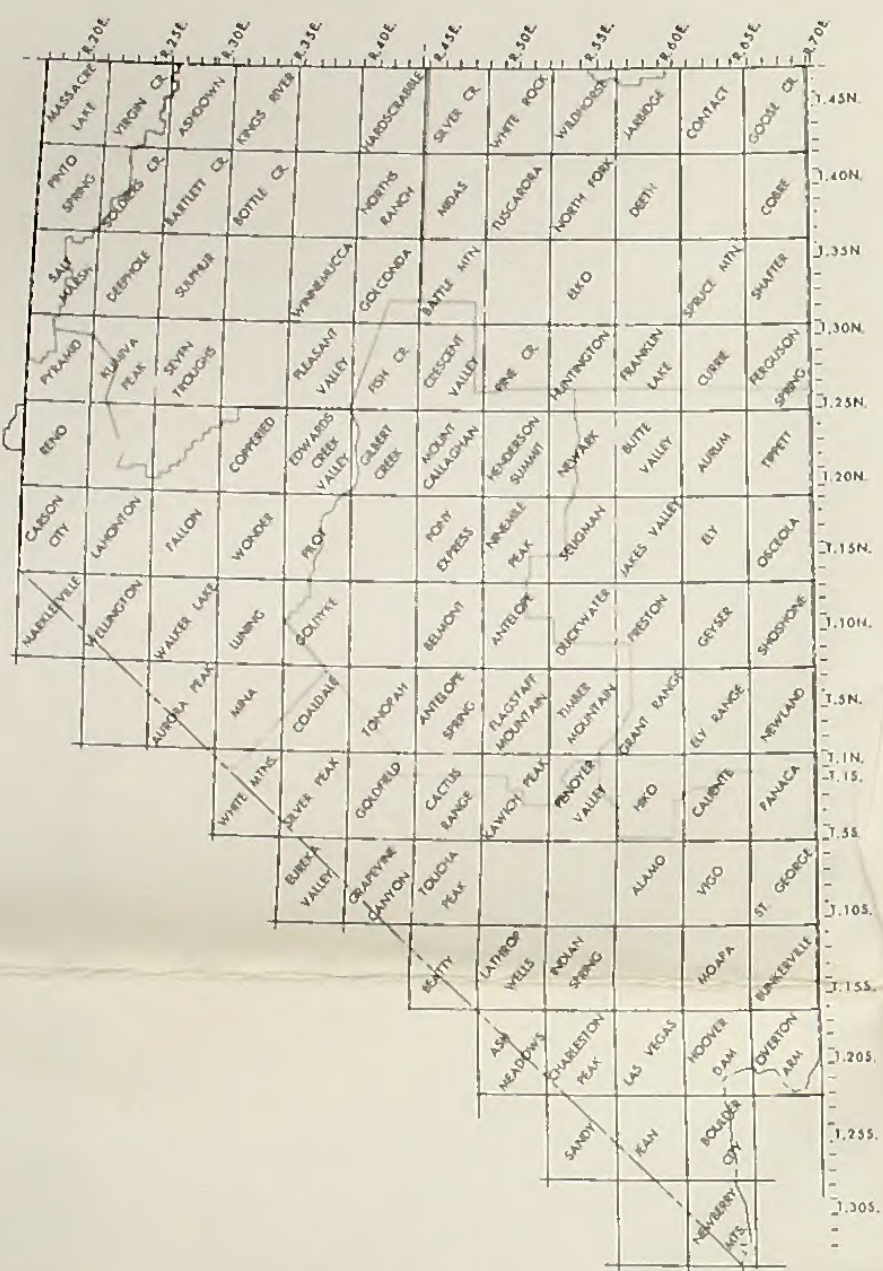 R.20E. R.25E. R.30E. R.35E. R.40E. R.45E. R.50E. R.55E. R.60E. R.65E. R.70E.
MASSACRE LAKE
VIRGIN CR.
ASHDOWN
KINGS RIVER
HARDSCRABBLE
SILVER CR.
WHITE ROCK
WILDHORSE
JARBIDGE
CONTACT
GOOSE CR.
T.45N.
PINTO SPRING
SOLDIERS CR.
BARTLETT CR.
BOTTLE CR.
NORTHS RANCH
MIDAS
TUSCARORA
NORTH FORK
DEETH
COBRE
T.40N.
SALT MARSH
DEEPHOLE
SULPHUR
WINNEMUCCA
GOLCONDA
BATTLE MTN
ELKO
SPRUCE MTN
SHAFTER
T.35N
T.30N.
PYRAMID
KUMIVA PEAK
SEVEN TROUGHS
PLEASANT VALLEY
FISH CR.
CRESCENT VALLEY
PINE CR.
HUNTINGTON
FRANKLIN LAKE
CURRIE
FERGUSON SPRING
T.25N.
RENO
COPPERIED
EDWARDS CREEK VALLEY
GILBERT CREEK
MOUNT CALLAGHAN
HENDERSON SUMMIT
NEWARK
BUTTE VALLEY
AURUM
TIPPETT
T.20N.
CARSON CITY
LAHONTON
FALLON
WONDER
PILOT
PONY EXPRESS
NINEMILE PEAK
SELIGMAN
JAKES VALLEY
ELY
OSCEOLA
T.15N.
MARKLEEVILLE
WELLINGTON
WALKER LAKE
LUNING
GOLDYKE
BELMONT
ANTELOPE
DUCKWATER
PRESTON
GEYSER
SHOSHONE
T.10N.
AURORA PEAK
MINA
COALDALE
TONOPAH
ANTELOPE SPRING
FLAGSTAFF MOUNTAIN
TIMBER MOUNTAIN
GRANT RANGE
ELY RANGE
NEWLAND
T.5N.
T.1N.
T.1S.
WHITE MTNS.
SILVER PEAK
GOLDFIELD
CACTUS RANGE
KAWICH PEAK
PENOYER VALLEY
HIKO
CALIENTE
PANACA
T.5S.
EUREKA VALLEY
GRAPEVINE CANYON
TOLICHA PEAK
ALAMO
VIGO
ST. GEORGE
T.10S.
BEATTY
LATHROP WELLS
INDIAN SPRING
MOAPA
BUNKERVILLE
T.15S.
ASH MEADOWS
CHARLESTON PEAK
LAS VEGAS
HOOVER DAM
OVERTON ARM
T.20S.
SANDY
JEAN
BOULDER CITY
T.25S.
NEWBERRY MTS.
T.30S.